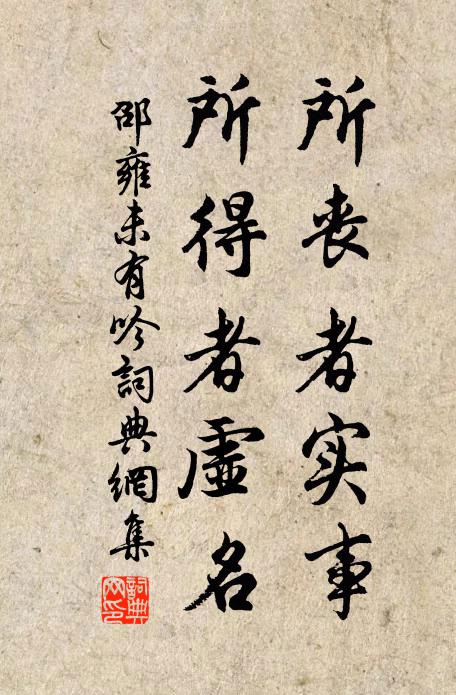 所丧者实事
所得者虚名
邵雍未有吟詞典網集
詞典网印